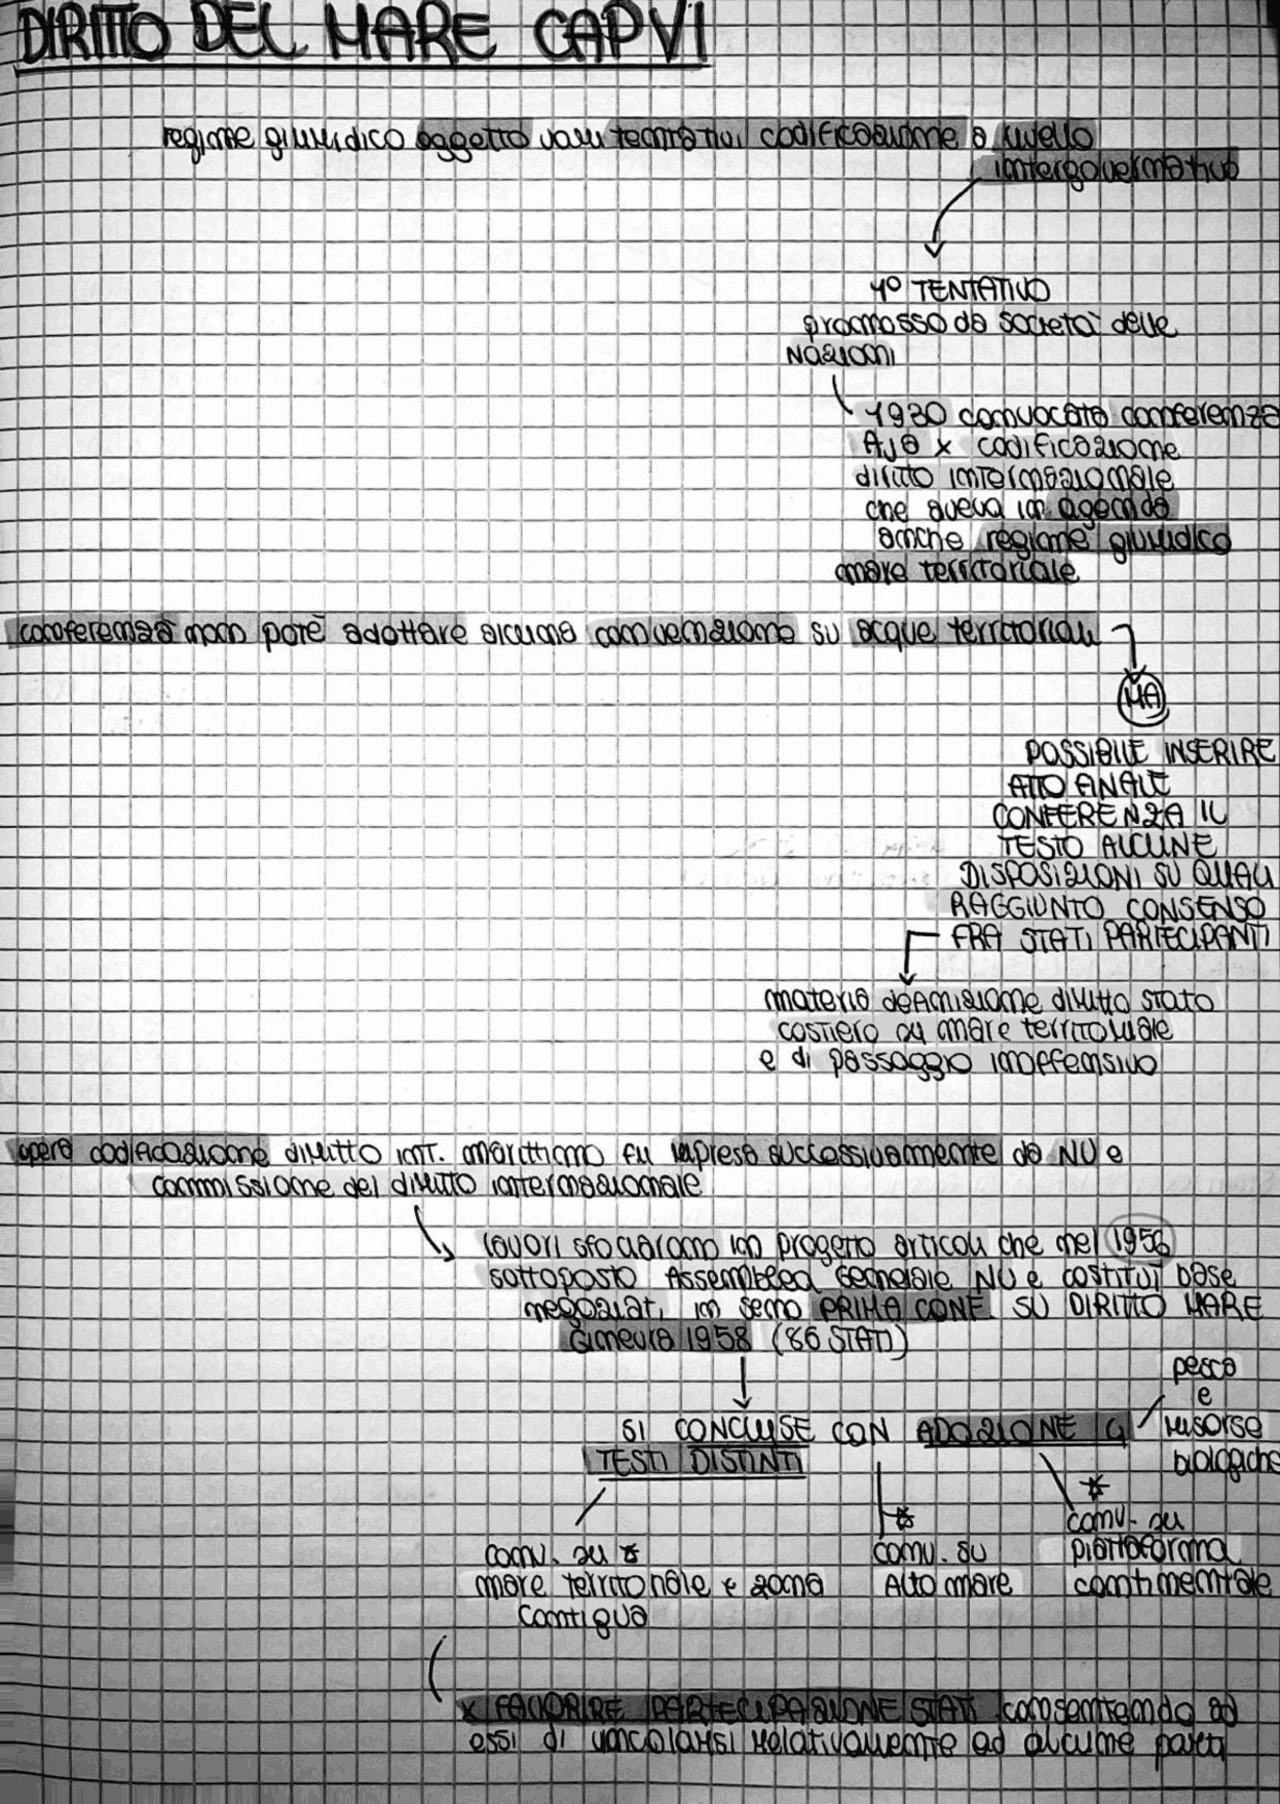 DIRITTO DEL MARE CAP VI
regime giuridico oggetto vari tentativi codificazione a livello
intergovernativo
1° TENTATIVO
promosso da società delle
Nazioni
1930 convocata conferenza
AJA x codificazione
diritto internazionale
che aveva in agenda
anche regime giuridico
mare territoriale
conferenza non potè adottare alcuna convenzione su acque territoriali
MA
POSSIBILE INSERIRE
ATTO FINALE
CONFERENZA IL
TESTO ALCUNE
DISPOSIZIONI SU QUALI
RAGGIUNTO CONSENSO
FRA STATI PARTECIPANTI
materia definizione diritto stato
costiero al mare territoriale
e di passaggio inoffensivo
opera codificazione diritto int. marittimo fu ripresa successivamente da NU e
commissione del diritto internazionale
lavori sfociarono in progetto articoli che nel 1956
sottoposto Assemblea Generale NU e costituì base
negoziati in seno PRIMA CONF. SU DIRITTO MARE
Ginevra 1958 (86 STATI)
pesca
e
risorse
biologiche
SI CONCLUSE CON ADOZIONE 4
TESTI DISTINTI
conv. su
mare territoriale e zona
contigua
conv. su
Alto mare
conv. su
piattaforma
continentale
x FAVORIRE PARTECIPAZIONE STATI consentendo ad
essi di vincolarsi relativamente ad alcune parti